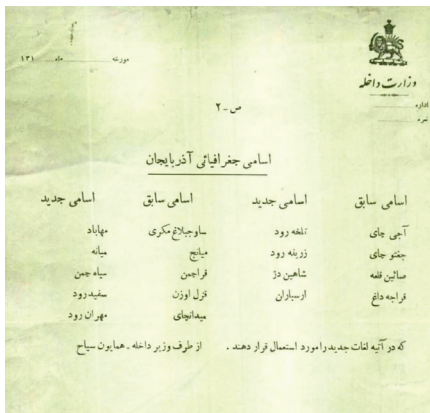 وزارت داخله
اداره
نمره
مورخه ماه ۱۳۱
ص-۲
اسامی جغرافیائی آذربایجان
اسامی سابق اسامی جدید اسامی سابق اسامی جدید
آجی چای تلخه رود ساوجبلاغ مکری مهاباد
جغتو چای زرینه رود میانج میانه
صائین قلعه شاهین دژ قراجمن سیاه چمن
قراجه داغ ارسباران قزل اوزن سفیدرود
میدانچای مهران رود
که در آتیه لغات جدید را مورد استعمال قرار دهند . از طرف وزیر داخله - همایون سیاح